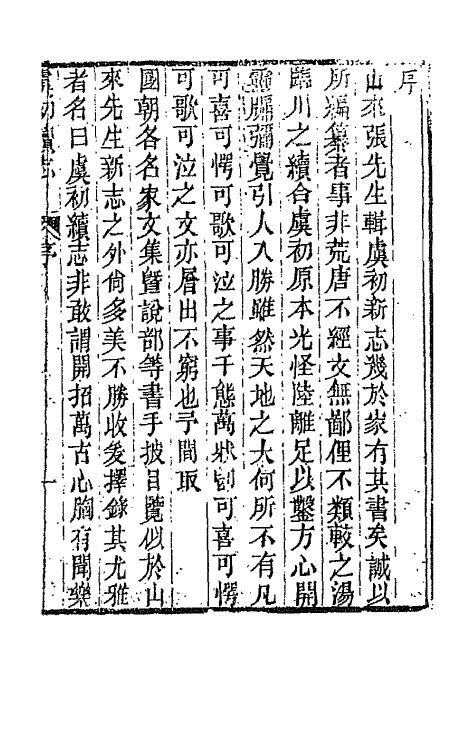 序
山來張先生輯虞初新志幾於家有其書矣誠以
所編纂者事非荒唐不經文無鄙俚不類較之湯
臨川之續合虞初原本光怪陸離足以鑿方心開
靈牖彌覺引人入勝雖然天地之大何所不有凡
可喜可愕可歌可泣之事千態萬狀則可喜可愕
可歌可泣之文亦層出不窮也予間取
國朝各名家文集曁說部等書手披目覽似於山
來先生新志之外尙多美不勝收爰擇錄其尤雅
者名曰虞初續志非敢謂開拓萬古心胸有聞樂
虞初續志
序
一